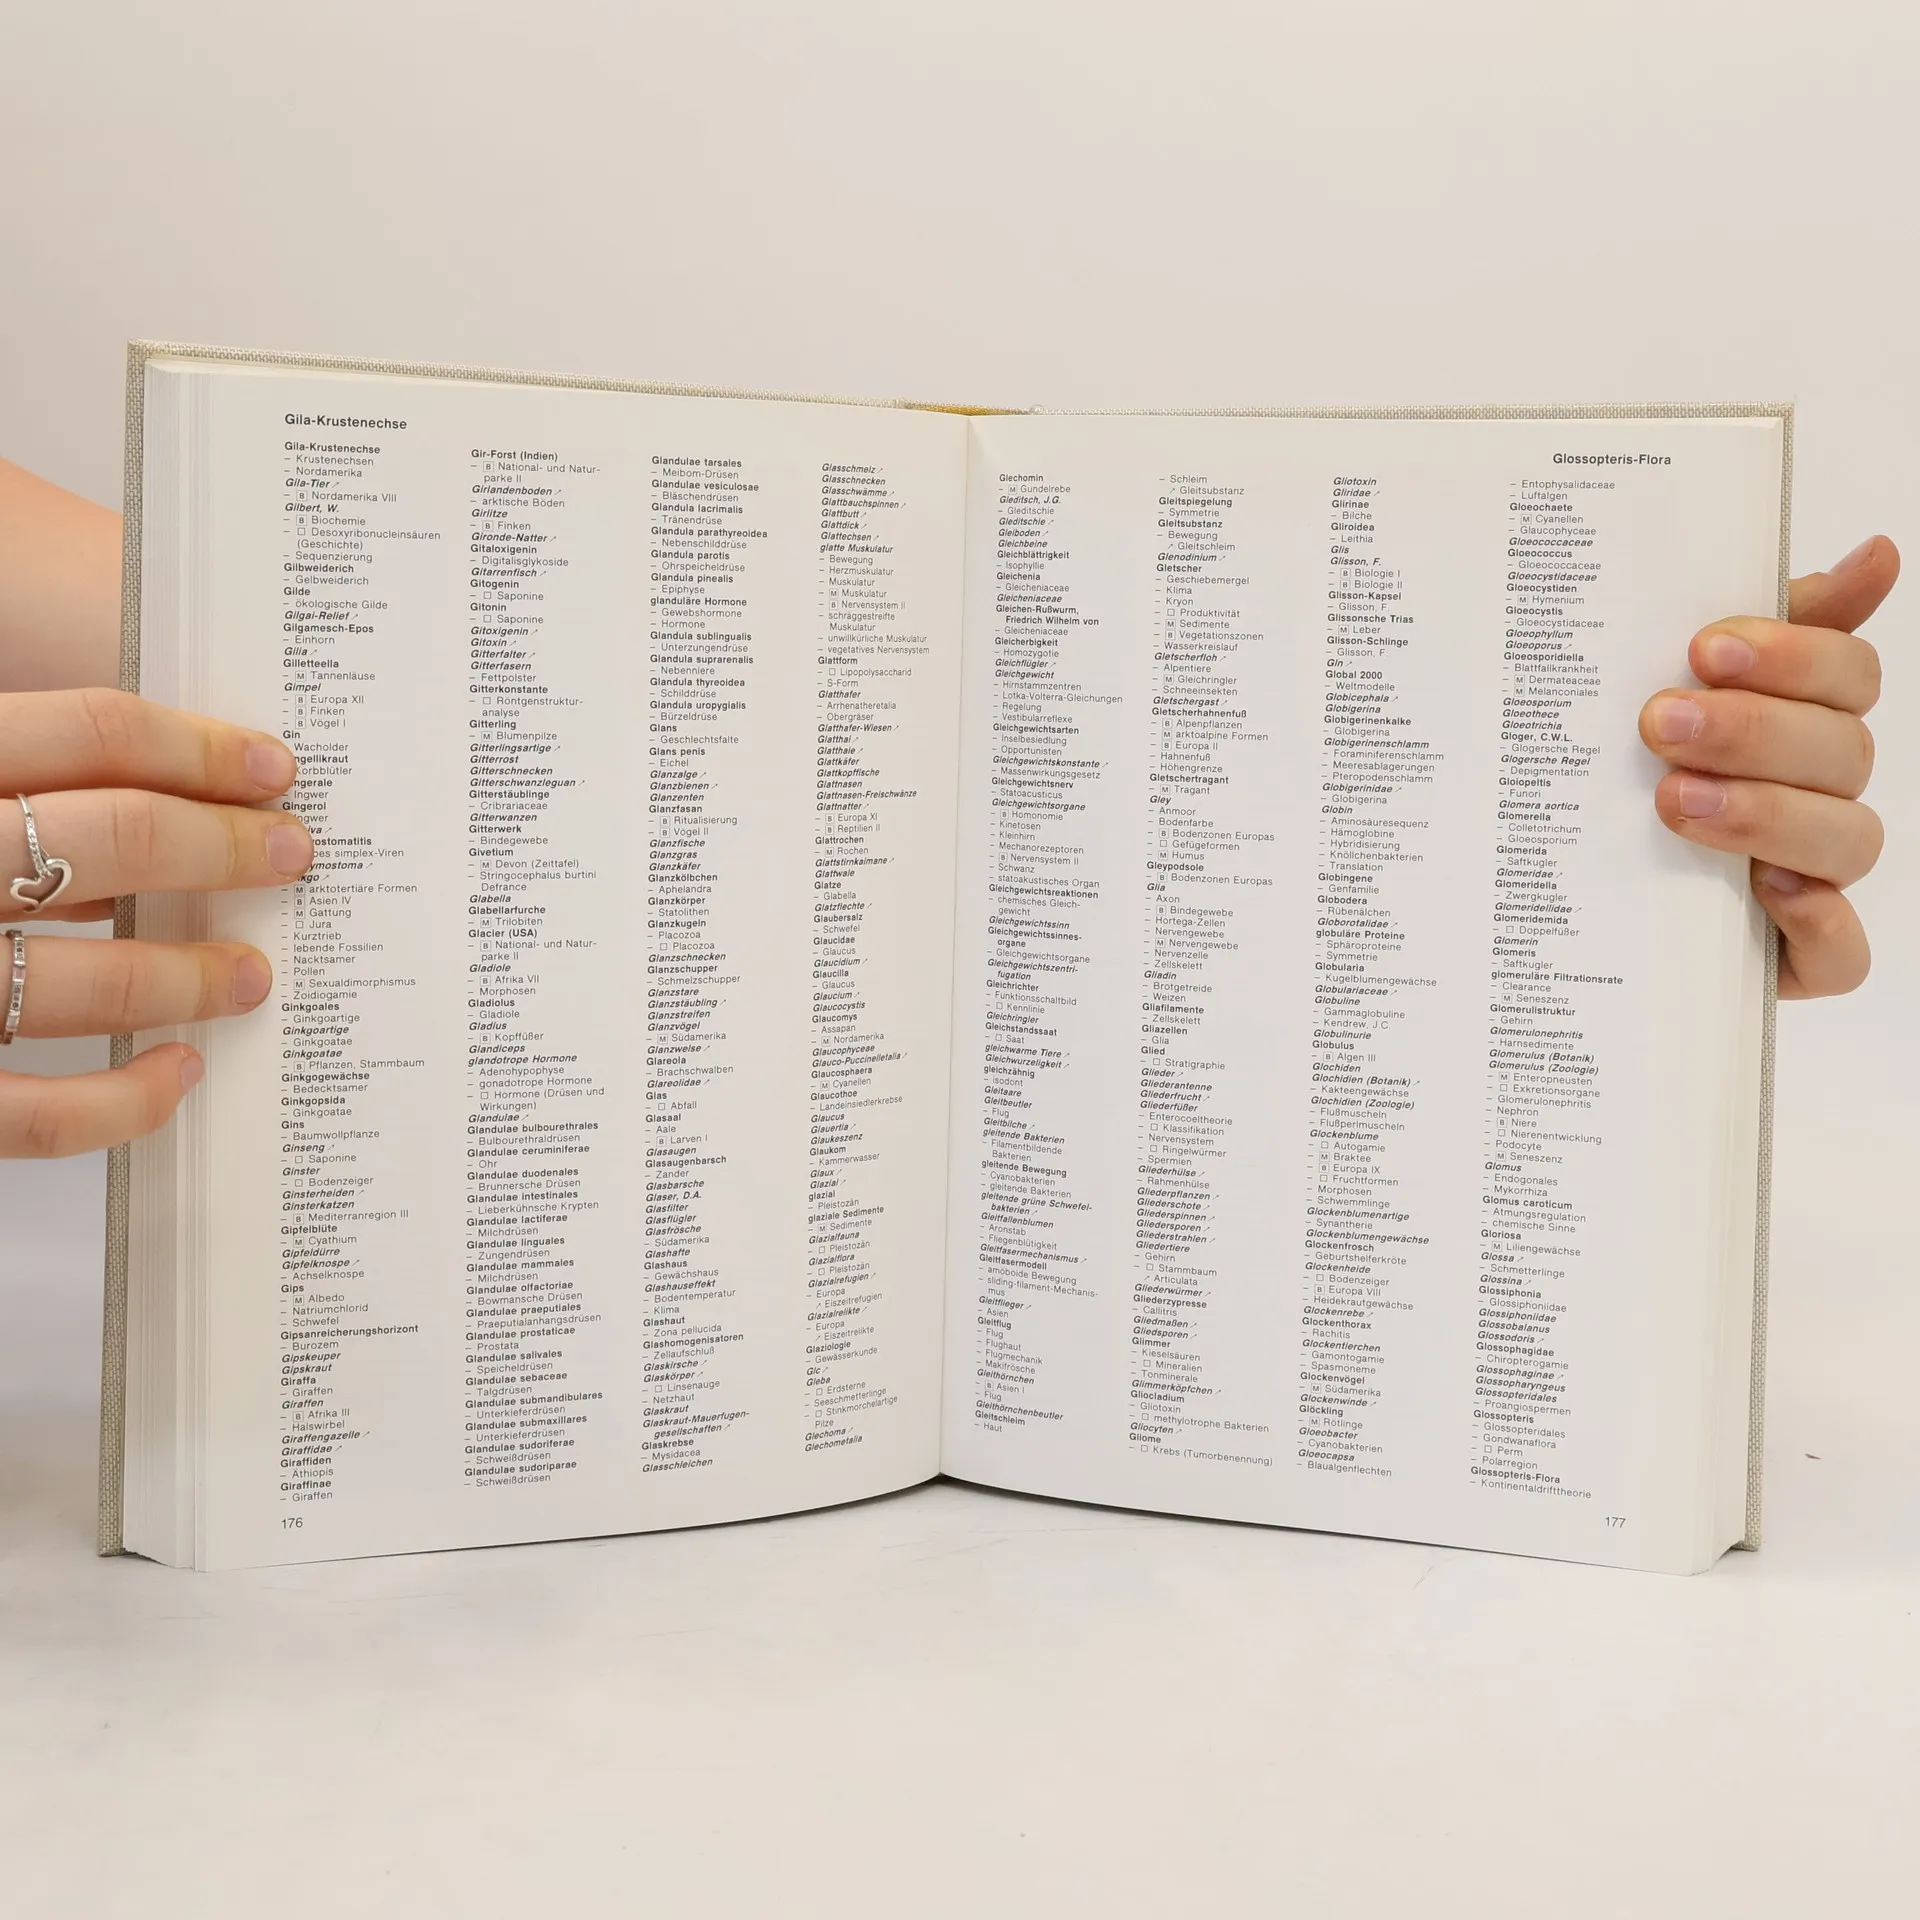 Gila-Krustenechse
Gila-Krustenechse
– Krustenechsen
– Nordamerika
Gila-Tier ↗
– B Nordamerika VIII
Gilbert, W.
– B Biochemie
– □ Desoxyribonucleinsäuren
(Geschichte)
– Sequenzierung
Gilbweiderich
– Gelbweiderich
Gilde
– ökologische Gilde
Gilgai-Relief ↗
Gilgamesch-Epos
– Einhorn
Gilia ↗
Gilletteella
– M Tannenläuse
Gimpel
– B Europa XII
– B Finken
– B Vögel I
Gin
Wacholder
ngellikraut
Korbblütler
ngerale
– Ingwer
Gingerol
Ingwer
iva ↗
rostomatitis
pes simplex-Viren
ymostoma ↗
kgo ↗
M arktotertiäre Formen
– B Asien IV
– M Gattung
– □ Jura
– Kurztrieb
– lebende Fossilien
– Nacktsamer
– Pollen
– M Sexualdimorphismus
– Zoidiogamie
Ginkgoales
– Ginkgoartige
Ginkgoartige
– Ginkgoatae
Ginkgoatae
– B Pflanzen, Stammbaum
Ginkgogewächse
– Bedecktsamer
Ginkgopsida
– Ginkgoatae
Gins
– Baumwollpflanze
Ginseng ↗
– □ Saponine
Ginster
– □ Bodenzeiger
Ginsterheiden ↗
Ginsterkatzen
– B Mediterranregion III
Gipfelblüte
– M Cyathium
Gipfeldürre
Gipfelknospe ↗
– Achselknospe
Gips
– M Albedo
– Natriumchlorid
– Schwefel
Gipsanreicherungshorizont
– Burozem
Gipskeuper
Gipskraut
Giraffa
– Giraffen
Giraffen
– B Afrika III
– Halswirbel
Giraffengazelle ↗
Giraffidae ↗
Giraffiden
– Äthiopis
Giraffinae
– Giraffen
Gir-Forst (Indien)
– B National- und Natur-
parke II
Girlandenboden ↗
– arktische Böden
Girlitze
– B Finken
Gironde-Natter ↗
Gitaloxigenin
– Digitalisglykoside
Gitarrenfisch ↗
Gitogenin
– □ Saponine
Gitonin
– □ Saponine
Gitoxigenin ↗
Gitoxin ↗
Gitterfalter ↗
Gitterfasern
– Fettpolster
Gitterkonstante
– □ Röntgenstruktur-
analyse
Gitterling
– M Blumenpilze
Gitterlingsartige ↗
Gitterrost
Gitterschnecken
Gitterschwanzleguan ↗
Gitterstäublinge
– Cribrariaceae
Gitterwanzen
Gitterwerk
– Bindegewebe
Givetium
– M Devon (Zeittafel)
– Stringocephalus burtini
Defrance
Glabella
Glabellarfurche
– M Trilobiten
Glacier (USA)
– B National- und Natur-
parke II
Gladiole
– B Afrika VII
– Morphosen
Gladiolus
– Gladiole
Gladius
– B Kopffüßer
Glandiceps
glandotrope Hormone
– Adenohypophyse
– gonadotrope Hormone
– □ Hormone (Drüsen und
Wirkungen)
Glandulae ↗
Glandulae bulbourethrales
– Bulbourethraldrüsen
Glandulae ceruminiferae
– Ohr
Glandulae duodenales
– Brunnersche Drüsen
Glandulae intestinales
– Lieberkühnsche Krypten
Glandulae lactiferae
– Milchdrüsen
Glandulae linguales
– Zungendrüsen
Glandulae mammales
– Milchdrüsen
Glandulae olfactoriae
– Bowmansche Drüsen
Glandulae praeputiales
– Praeputialanhangsdrüsen
Glandulae prostaticae
– Prostata
Glandulae salivales
– Speicheldrüsen
Glandulae sebaceae
– Talgdrüsen
Glandulae submandibulares
– Unterkieferdrüsen
Glandulae submaxillares
– Unterkieferdrüsen
Glandulae sudoriferae
– Schweißdrüsen
Glandulae sudoriparae
– Schweißdrüsen
Glandulae tarsales
– Meibom-Drüsen
Glandulae vesiculosae
– Bläschendrüsen
Glandula lacrimalis
– Tränendrüse
Glandula parathyreoidea
– Nebenschilddrüse
Glandula parotis
– Ohrspeicheldrüse
Glandula pinealis
– Epiphyse
glanduläre Hormone
– Gewebshormone
– Hormone
Glandula sublingualis
– Unterzungendrüse
Glandula suprarenalis
– Nebenniere
Glandula thyreoidea
– Schilddrüse
Glandula uropygialis
– Bürzeldrüse
Glans
– Geschlechtsfalte
Glans penis
– Eichel
Glanzalge ↗
Glanzbienen ↗
Glanzenten
Glanzfasan
– B Ritualisierung
– B Vögel II
Glanzfische
Glanzgras
Glanzkäfer
Glanzkölbchen
– Aphelandra
Glanzkörper
– Statolithen
Glanzkugeln
– Placozoa
– □ Placozoa
Glanzschnecken
Glanzschupper
– Schmelzschupper
Glanzstare
Glanzstäubling ↗
Glanzstreifen
Glanzvögel
– M Südamerika
Glanzwelse ↗
Glareola
– Brachschwalben
Glareolidae ↗
Glas
– □ Abfall
Glasaal
– Aale
– B Larven I
Glasaugen
Glasaugenbarsch
– Zander
Glasbarsche
Glaser, D.A.
Glasfilter
Glasflügler
Glasfrösche
– Südamerika
Glashafte
Glashaus
– Gewächshaus
Glashauseffekt
– Bodentemperatur
– Klima
Glashaut
– Zona pellucida
Glashomogenisatoren
– Zellaufschluß
Glaskirsche ↗
Glaskörper ↗
– □ Linsenauge
– Netzhaut
Glaskraut
Glaskraut-Mauerfugen-
gesellschaften ↗
Glaskrebse
– Mysidacea
Glasschleichen
Glasschmelz ↗
Glasschnecken
Glasschwämme ↗
Glattbauchspinnen ↗
Glattbutt ↗
Glattdick ↗
Glattechsen ↗
glatte Muskulatur
– Bewegung
– Herzmuskulatur
– Muskulatur
– M Muskulatur
– B Nervensystem II
– schräggestreifte
Muskulatur
– unwillkürliche Muskulatur
– vegetatives Nervensystem
Glattform
– □ Lipopolysaccharid
– S-Form
Glatthafer
– Arrhenatheretalia
– Obergräser
Glatthafer-Wiesen ↗
Glatthai ↗
Glatthaie ↗
Glattkäfer
Glattkopffische
Glattnasen
Glattnasen-Freischwänze
Glattnatter ↗
– B Europa XI
– B Reptilien II
Glattrochen
– M Rochen
Glattstirnkaimane ↗
Glattwale
Glatze
– Glabella
Glatzflechte ↗
Glaubersalz
– Schwefel
Glaucidae
– Glaucus
Glaucidium ↗
Glaucilla
– Glaucus
Glaucium ↗
Glaucocystis
Glaucomys
– Assapan
– M Nordamerika
Glaucophyceae
Glauco-Puccinelletalia ↗
Glaucosphaera
– M Cyanellen
Glaucothoe
– Landeinsiedlerkrebse
Glaucus
Glauertia ↗
Glaukeszenz
Glaukom
– Kammerwasser
Glaux ↗
Glazial ↗
glazial
– Pleistozän
glaziale Sedimente
– M Sedimente
Glazialfauna
– □ Pleistozän
Glazialflora
– □ Pleistozän
Glazialrefugien ↗
– Europa
↗ Eiszeitrefugien
Glazialrelikte ↗
– Europa
↗ Eiszeitrelikte
Glaziologie
– Gewässerkunde
Glc ↗
Gleba
– □ Erdsterne
– Seeschmetterlinge
– □ Stinkmorchelartige
Pilze
Glechoma ↗
Glechometalia
176
Glossopteris-Flora
Glechomin
– M Gundelrebe
Gleditsch, J.G.
– Gleditschie
Gleditschie ↗
Gleiboden ↗
Gleichbeine
Gleichblättrigkeit
– Isophyllie
Gleichenia
– Gleicheniaceae
Gleicheniaceae
Gleichen-Rußwurm,
Friedrich Wilhelm von
– Gleicheniaceae
Gleicherbigkeit
– Homozygotie
Gleichflügler ↗
Gleichgewicht
– Hirnstammzentren
– Lotka-Volterra-Gleichungen
– Regelung
– Vestibularreflexe
Gleichgewichtsarten
– Inselbesiedlung
– Opportunisten
Gleichgewichtskonstante ↗
– Massenwirkungsgesetz
Gleichgewichtsnerv
– Statoacusticus
Gleichgewichtsorgane
– B Homonomie
– Kinetosen
– Kleinhirn
– Mechanorezeptoren
– B Nervensystem II
– Schwanz
– statoakustisches Organ
Gleichgewichtsreaktionen
– chemisches Gleich-
gewicht
Gleichgewichtssinn
Gleichgewichtssinnes-
organe
– Gleichgewichtsorgane
Gleichgewichtszentri-
fugation
Gleichrichter
– Funktionsschaltbild
– □ Kennlinie
Gleichringler
Gleichstandssaat
– □ Saat
gleichwarme Tiere ↗
Gleichwurzeligkeit ↗
gleichzähnig
– isodont
Gleitaare
Gleitbeutler
– Flug
Gleitbilche ↗
gleitende Bakterien
– Filamentbildende
Bakterien
gleitende Bewegung
– Cyanobakterien
– gleitende Bakterien
gleitende grüne Schwefel-
bakterien ↗
Gleitfallenblumen
– Aronstab
– Fliegenblütigkeit
Gleitfasermechanismus ↗
Gleitfasermodell
– amöboide Bewegung
– sliding-filament-Mechanis-
mus
Gleitflieger ↗
– Asien
Gleitflug
– Flug
– Flughaut
– Flugmechanik
– Makifrösche
Gleithörnchen
– B Asien I
– Flug
Gleithörnchenbeutler
Gleitschleim
– Haut
– Schleim
↗ Gleitsubstanz
Gleitspiegelung
– Symmetrie
Gleitsubstanz
– Bewegung
↗ Gleitschleim
Glenodinium ↗
Gletscher
– Geschiebemergel
– Klima
– Kryon
– □ Produktivität
– M Sedimente
– B Vegetationszonen
– Wasserkreislauf
Gletscherfloh ↗
– Alpentiere
– M Gleichringler
– Schneeinsekten
Gletschergast ↗
Gletscherhahnenfuß
– B Alpenpflanzen
– M arktoalpine Formen
– B Europa II
– Hahnenfuß
– Höhengrenze
Gletschertragant
– M Tragant
Gley
– Anmoor
– Bodenfarbe
– B Bodenzonen Europas
– □ Gefügeformen
– M Humus
Gleypodsole
– B Bodenzonen Europas
Glia
– Axon
– B Bindegewebe
– Hortega-Zellen
– Nervengewebe
– M Nervengewebe
– Nervenzelle
– Zellskelett
Gliadin
– Brotgetreide
– Weizen
Gliafilamente
– Zellskelett
Gliazellen
– Glia
Glied
– □ Stratigraphie
Glieder ↗
Gliederantenne
Gliederfrucht ↗
Gliederfüßer
– Enterocoeltheorie
– □ Klassifikation
– Nervensystem
– □ Ringelwürmer
– Spermien
Gliederhülse ↗
– Rahmenhülse
Gliederpflanzen ↗
Gliederschote ↗
Gliederspinnen ↗
Gliedersporen ↗
Gliederstrahlen ↗
Gliedertiere
– Gehirn
– □ Stammbaum
↗ Articulata
Gliederwürmer ↗
Gliederzypresse
– Callitris
Gliedmaßen ↗
Gliedsporen ↗
Glimmer
– Kieselsäuren
– □ Mineralien
– Tonminerale
Glimmerköpfchen ↗
Gliocladium
– Gliotoxin
– □ methylotrophe Bakterien
Gliocyten ↗
Gliome
– □ Krebs (Tumorbenennung)
Gliotoxin
Gliridae ↗
Glirinae
– Bilche
Gliroidea
– Leithia
Glis
Glisson, F.
– B Biologie I
– B Biologie II
Glisson-Kapsel
– Glisson, F.
Glissonsche Trias
– M Leber
Glisson-Schlinge
– Glisson, F.
Gln ↗
Global 2000
– Weltmodelle
Globicephala ↗
Globigerina
Globigerinenkalke
– Globigerina
Globigerinenschlamm
– Foraminiferenschlamm
– Meeresablagerungen
– Pteropodenschlamm
Globigerinidae ↗
– Globigerina
Globin
– Aminosäuresequenz
– Hämoglobine
– Hybridisierung
– Knöllchenbakterien
– Translation
Globingene
– Genfamilie
Globodera
– Rübenälchen
Globorotalidae ↗
globuläre Proteine
– Sphäroproteine
– Symmetrie
Globularia
– Kugelblumengewächse
Globulariaceae ↗
Globuline
– Gammaglobuline
– Kendrew, J.C.
Globulinurie
Globulus
– B Algen III
Glochiden
Glochidien (Botanik) ↗
– Kakteengewächse
Glochidien (Zoologie)
– Flußmuscheln
– Flußperlmuscheln
Glockenblume
– □ Autogamie
– M Braktee
– B Europa IX
– □ Fruchtformen
– Morphosen
– Schwemmlinge
Glockenblumenartige
– Synantherie
Glockenblumengewächse
Glockenfrosch
– Geburtshelferkröte
Glockenheide
– □ Bodenzeiger
– B Europa VIII
– Heidekrautgewächse
Glockenrebe ↗
Glockenthorax
– Rachitis
Glockentierchen
– Gamontogamie
– Spasmoneme
Glockenvögel
– M Südamerika
Glockenwinde ↗
Glöckling
– M Rötlinge
Gloeobacter
– Cyanobakterien
Gloeocapsa
– Blaualgenflechten
– Entophysalidaceae
– Luftalgen
Gloeochaete
– M Cyanellen
– Glaucophyceae
Gloeococcaceae
Gloeococcus
– Gloeococcaceae
Gloeocystidaceae
Gloeocystiden
– M Hymenium
Gloeocystis
– Gloeocystidaceae
Gloeophyllum
Gloeoporus ↗
Gloeosporidiella
– Blattfallkrankheit
– M Dermateaceae
– M Melanconiales
Gloeosporium
Gloeothece
Gloeotrichia
Gloger, C.W.L.
– Glogersche Regel
Glogersche Regel
– Depigmentation
Gloiopeltis
– Funori
Glomera aortica
Glomerella
– Colletotrichum
– Gloeosporium
Glomerida
– Saftkugler
Glomeridae ↗
Glomeridella
– Zwergkugler
Glomeridellidae ↗
Glomeridemida
– □ Doppelfüßer
Glomerin
Glomeris
– Saftkugler
glomeruläre Filtrationsrate
– Clearance
– M Seneszenz
Glomerulistruktur
– Gehirn
Glomerulonephritis
– Harnsedimente
Glomerulus (Botanik)
Glomerulus (Zoologie)
– M Enteropneusten
– □ Exkretionsorgane
– Glomerulonephritis
– Nephron
– B Niere
– □ Nierenentwicklung
– Podocyte
– M Seneszenz
Glomus
– Endogonales
– Mykorrhiza
Glomus caroticum
– Atmungsregulation
– chemische Sinne
Gloriosa
– M Liliengewächse
Glossa ↗
– Schmetterlinge
Glossina ↗
Glossiphonia
– Glossiphoniidae
Glossiphoniidae
Glossobalanus
Glossodoris ↗
Glossophagidae
– Chiropterogamie
Glossophaginae ↗
Glossopharyngeus
Glossopteridales
– Proangiospermen
Glossopteris
– Glossopteridales
– Gondwanaflora
– □ Perm
– Polarregion
Glossopteris-Flora
– Kontinentaldrifttheorie
177